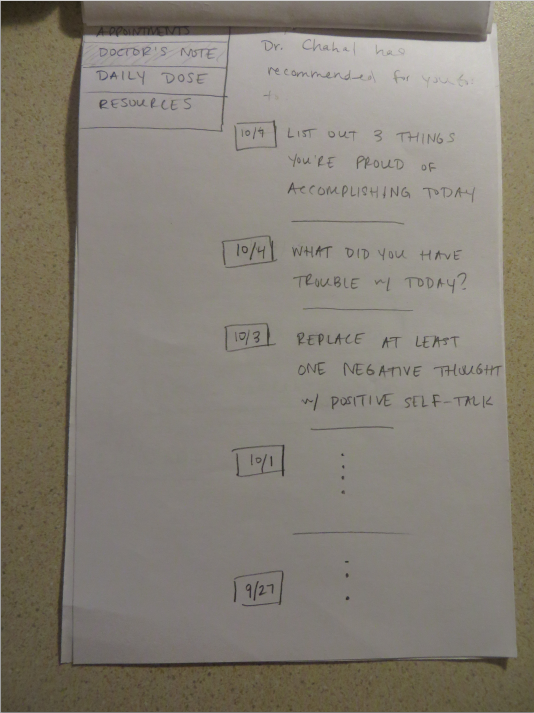 APPOINTMENTS
DOCTOR'S NOTE
DAILY DOSE
RESOURCES
Dr. Chahal has
recommended for you
10/7
LIST OUT 3 THINGS
YOU'RE PROUD OF
ACCOMPLISHING TODAY
10/4
WHAT DID YOU HAVE
TROUBLE W/ TODAY?
10/3
REPLACE AT LEAST
ONE NEGATIVE THOUGHT
W/ POSITIVE SELF-TALK
10/1
9/27